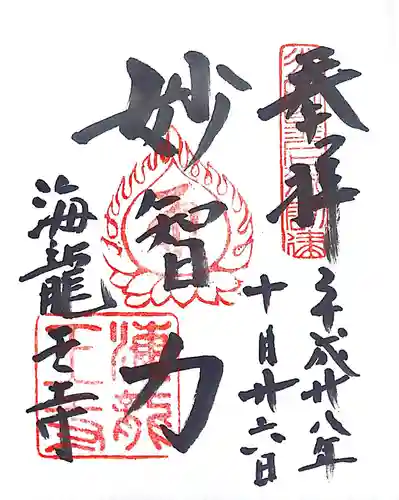 奉拝
平成廿八年
十月廿六日
妙智力
海龍王寺
海龍
王寺